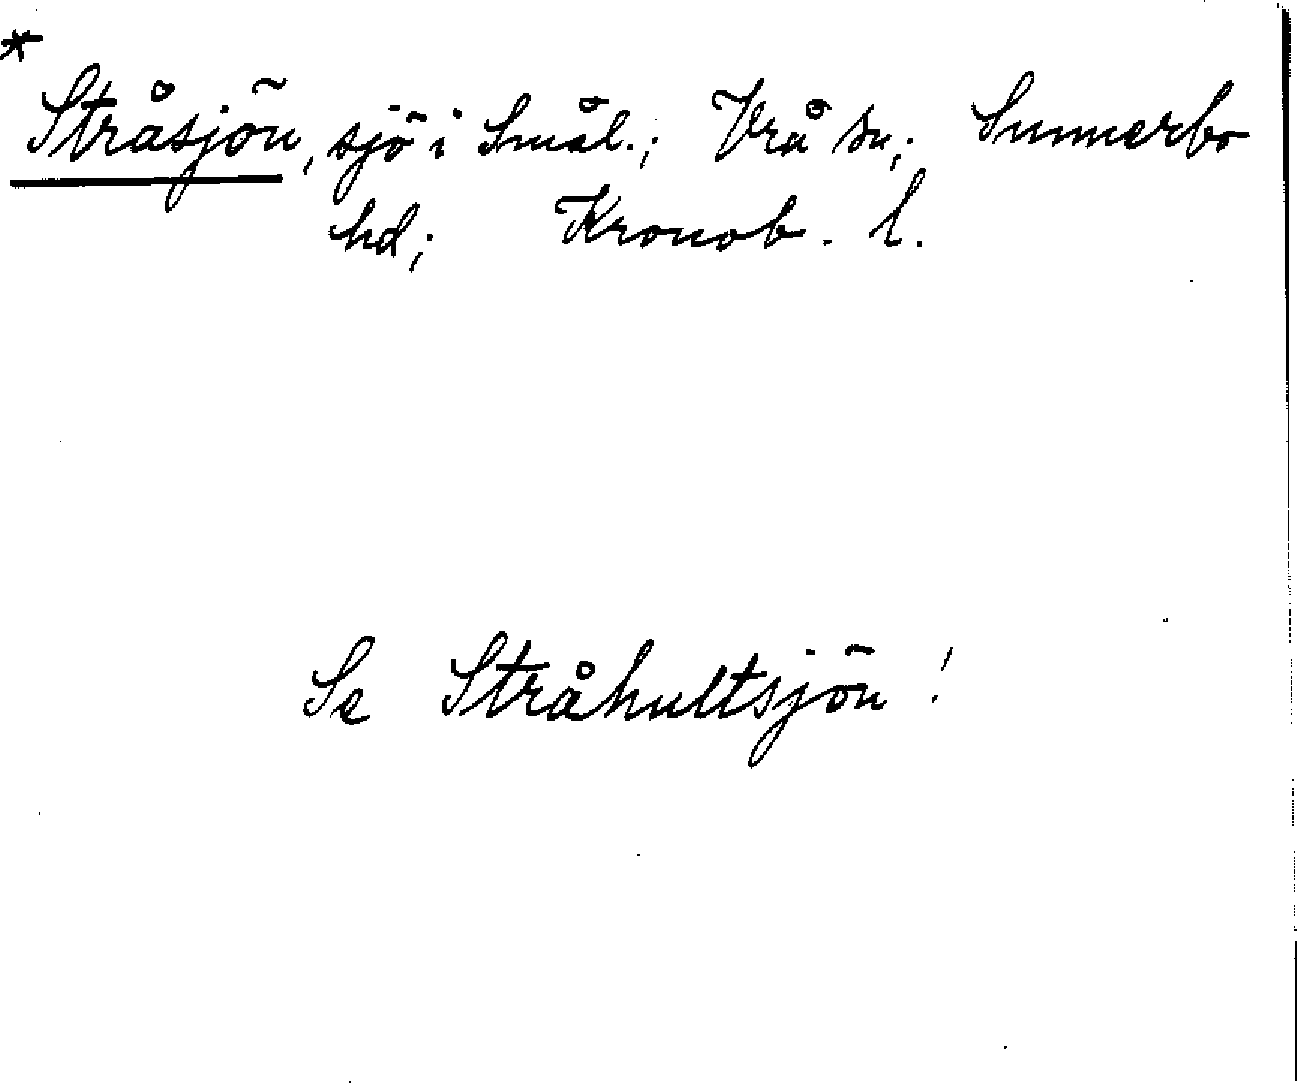 *
Stråsjön, sjö i Smål.; Vrå sn; Sunnerbo
hd; Kronob. l.
Se Stråhultsjön!